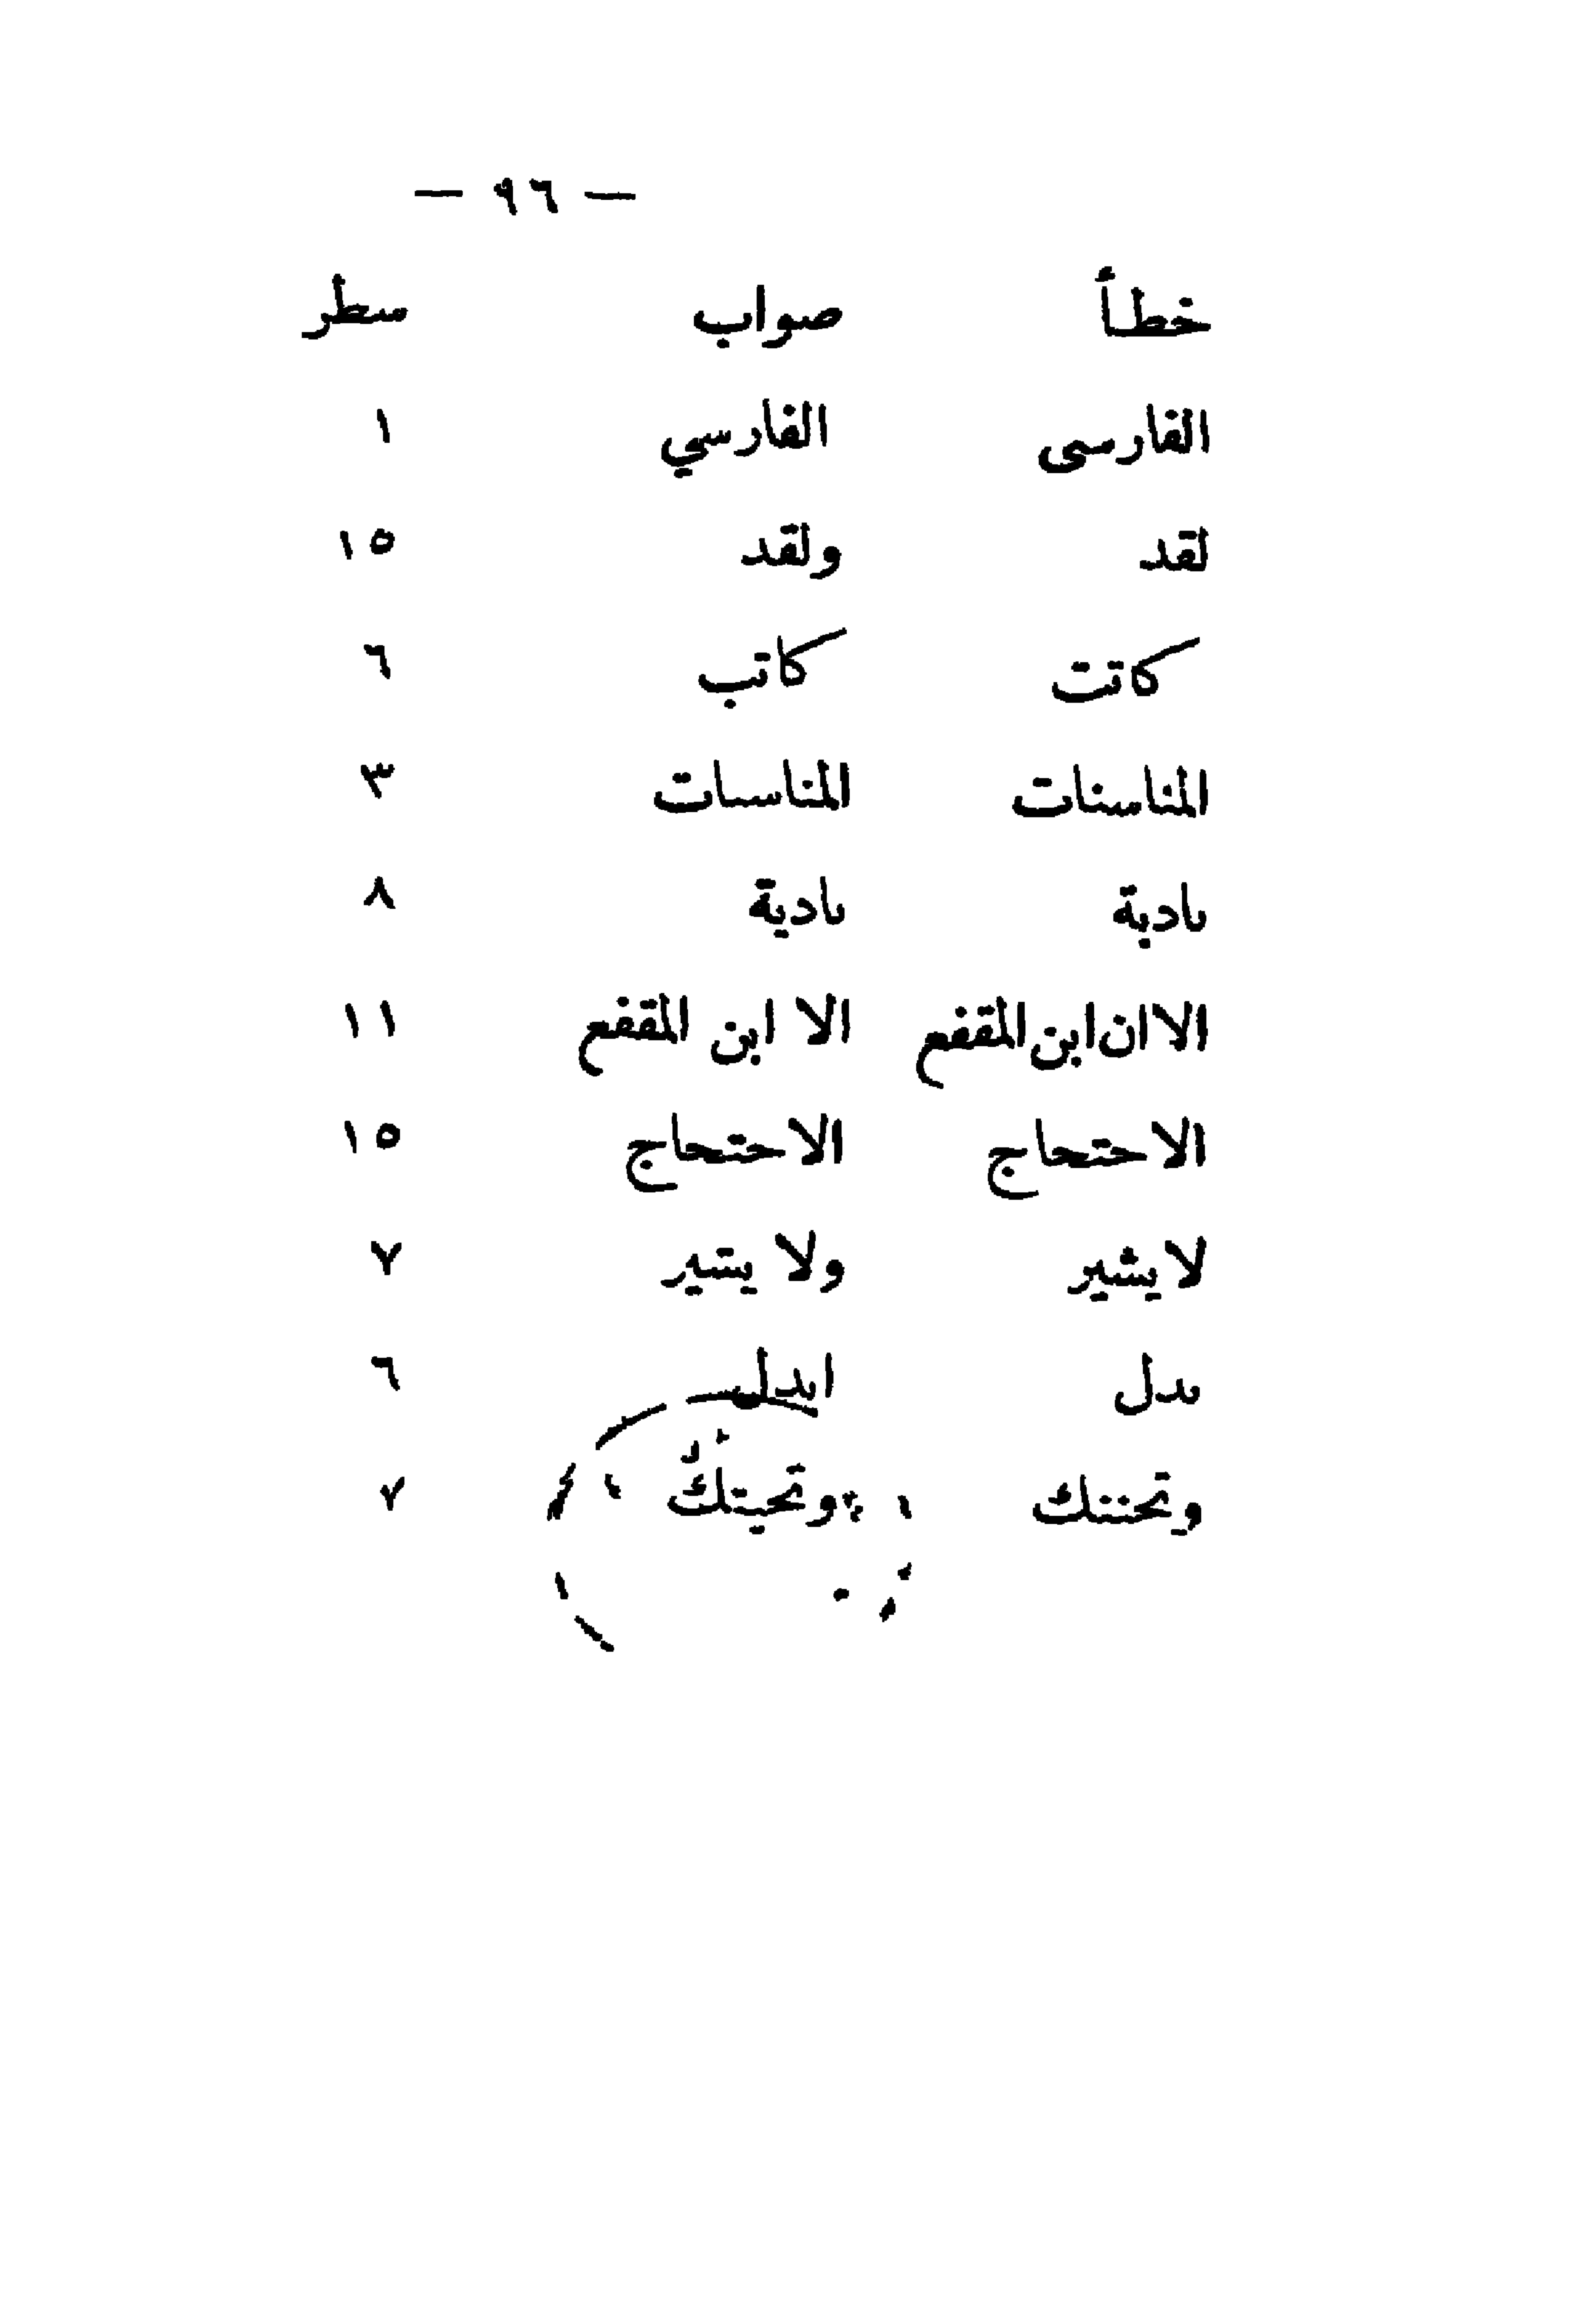 — ٩٦ —
خطأ صواب سطر
الفارسى الفارسي ١
لقد ولقد ١٥
كاتت كاتب ٦
المناسنات المناسبات ٣
بادبة بادية ٨
الا ان ابن المقفع الا ابن المقفع ١١
الاحتحاج الاحتجاج ١٥
لا يشير ولا يشير ٧
بدل ابدل ٦
وتحننك وتحيتك ٧